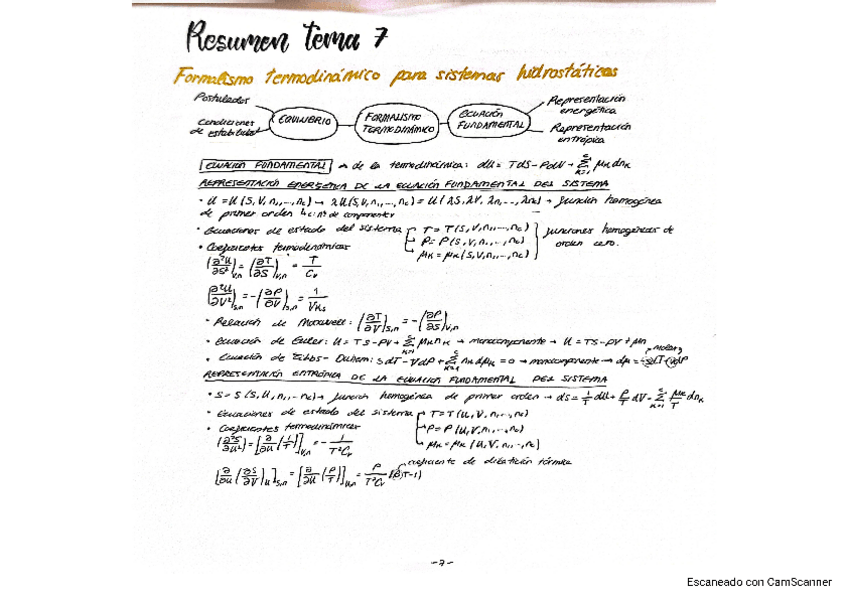 Resumen tema 7
Formalismo termodinámico para sistemas hidrostáticos
Postulados
Condiciones de estabilidad
EQUILIBRIO
FORMALISMO TERMODINÁMICO
ECUACIÓN FUNDAMENTAL
Representación energética
Representación entrópica
ECUACIÓN FUNDAMENTAL → de la termodinámica: dU = TdS - PdV + Σ μk dnk
REPRESENTACIÓN ENERGÉTICA DE LA ECUACIÓN FUNDAMENTAL DEL SISTEMA
• U = U(S,V,n1,...,nc) → λU(S,V,n1,...,nc) = U(λS,λV,λn1,...,λnc) → función homogénea
de primer orden ↳ c: nº de componentes
• Ecuaciones de estado del sistema T = T(S,V,n1,...,nc)
P = P(S,V,n1,...,nc)
μk = μk(S,V,n1,...,nc)
funciones homogéneas de orden cero.
• Coeficientes termodinámicos
(∂²U/∂S²)V,n = (∂T/∂S)V,n = T/Cv
(∂²U/∂V²)S,n = -(∂P/∂V)S,n = 1/VKs
• Relación de Maxwell: (∂T/∂V)S,n = -(∂P/∂S)V,n
• Ecuación de Euler: U = TS - PV + Σ μk nk → monocomponente → U = TS - PV + μn
• Ecuación de Gibbs - Duhem: SdT - VdP + Σ nk dμk = 0 → monocomponente → dμ = -sdT + vdP
molares
REPRESENTACIÓN ENTRÓPICA DE LA ECUACIÓN FUNDAMENTAL DEL SISTEMA
• S = S(S,U,n1,...,nc) → función homogénea de primer orden → dS = 1/T dU + P/T dV - Σ μk/T dnk
• Ecuaciones de estado del sistema T = T(U,V,n1,...,nc)
P = P(U,V,n1,...,nc)
μk = μk(U,V,n1,...,nc)
• Coeficientes termodinámicos
(∂²S/∂U²) = [∂/∂U (1/T)]V,n = -1/T²Cv
coeficiente de dilatación térmica
[∂/∂U (∂S/∂V)U]S,n = [∂/∂U (P/T)]V,n = P/T²Cv (βT-1)
-7-
Escaneado con CamScanner